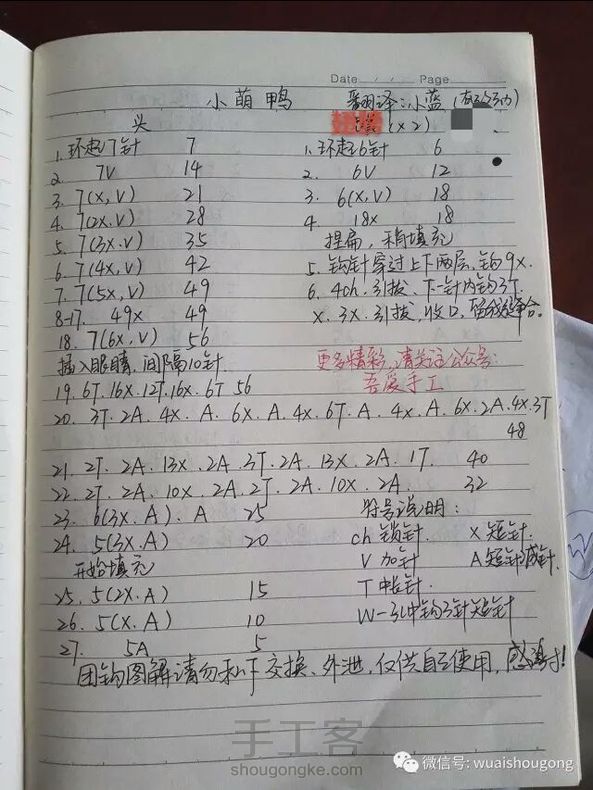 Date Page
小萌鸭 翻译:小蓝(有改动)
头
翅膀(x2)
1. 环起7针 7
2. 7V 14
3. 7(x,V) 21
4. 7(2x.V) 28
5. 7(3x.V) 35
6. 7(4x,V) 42
7. 7(5x,V) 49
8-17. 49x 49
18. 7(6x,V) 56
插入眼睛,间隔10针
19. 6T.16X.12T.16x.6T 56
20. 3T.2A.4x.A.6x.A.4x.6T.A.4x.A.6x.2A.4x.3T
48
21. 2T.2A.13x.2A.3T.2A.13x.2A.1T. 40
22. 2T.2A.10x.2A.2T.2A.10x.2A. 32
23. 6(3x.A).A 25
24. 5(3x.A) 20
开始填充
25. 5(2x.A) 15
26. 5(x.A) 10
27. 5A 5
1. 环起6针 6
2. 6V 12
3. 6(x,V) 18
4. 18x 18
捏扁,稍填充
5. 钩针穿过上下两层,钩9x.
6. 4ch.引拔.下一针内钩3T.
x.3x.引拔,收口,留线缝合。
更多精彩,请关注公众号:
吾爱手工
符号说明:
ch 锁针. X 短针.
V 加针 A 短针减针.
T 中长针.
W 一孔中钩3针短针
团钩图解请勿私下交换、外泄,仅供自己使用,感谢!
手工客
shougongke.com
微信号: wuaishougong